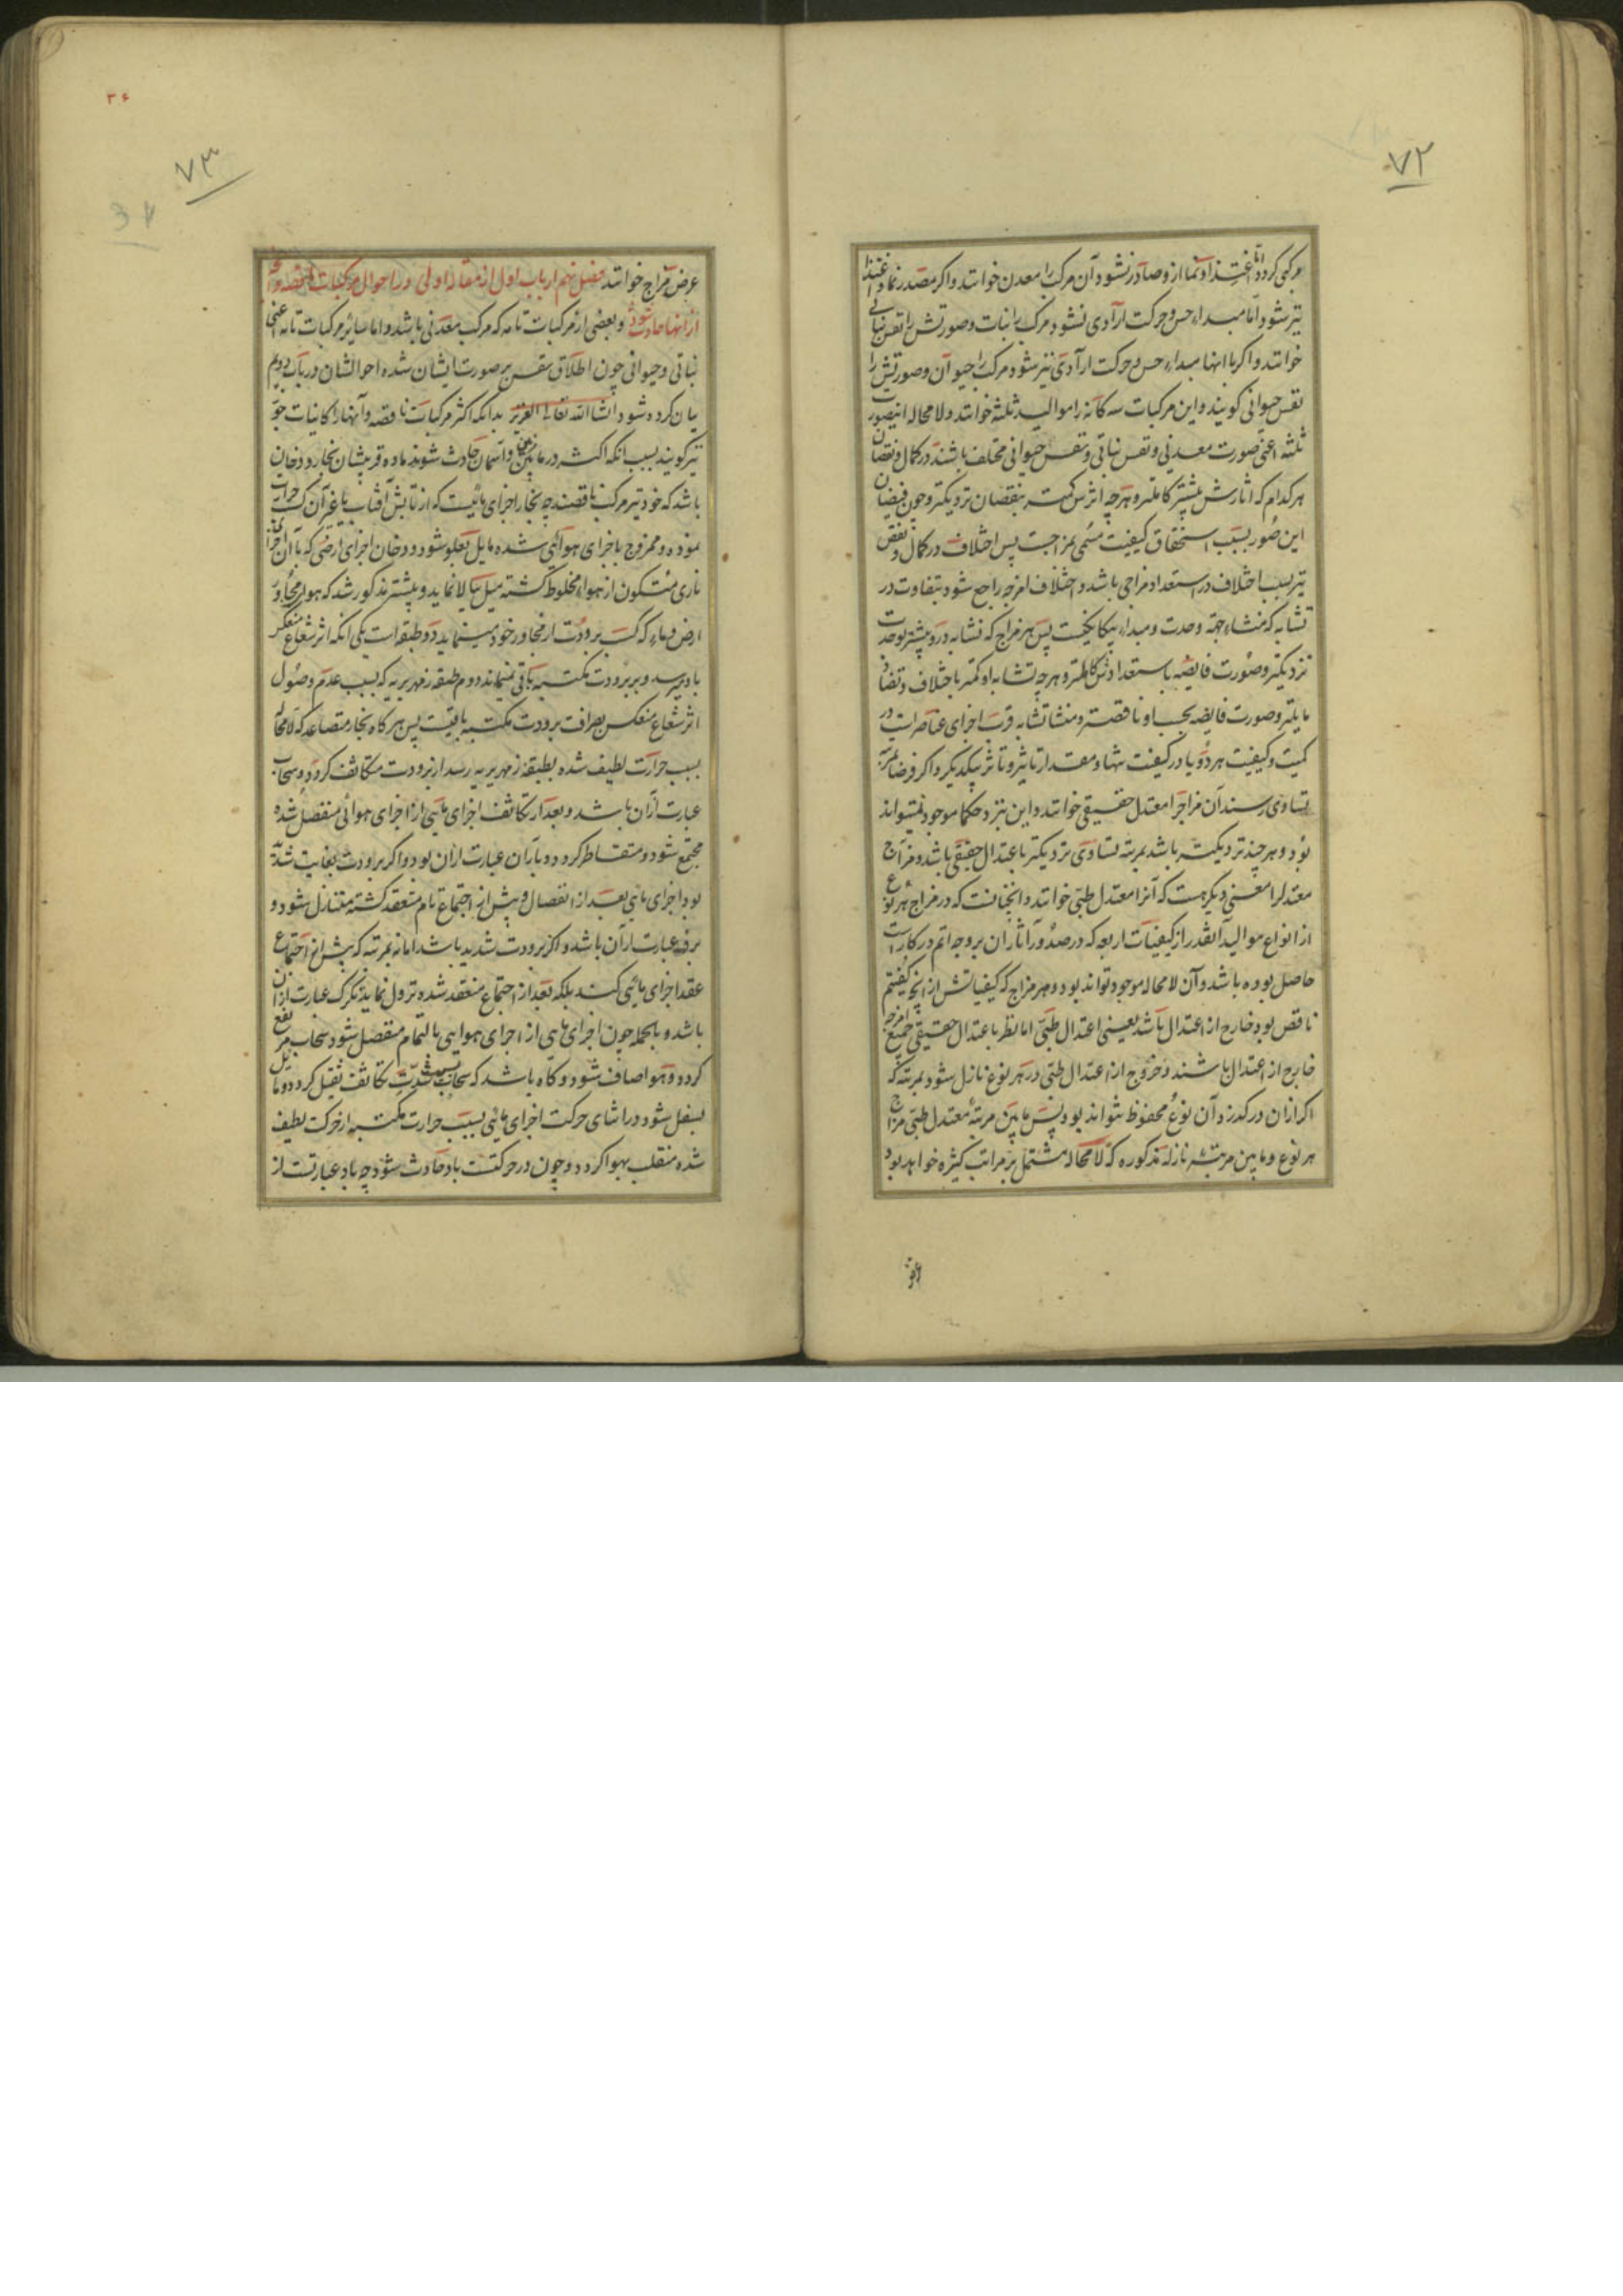 ۷۲
مرکبی گردد اما اغتذا و نما ازو صادر نشود آن مرکب را معدن خوانند و اگر مصدر نما و اغتذا
نیز شود اما مبداء حس و حرکت ارادی نشود مرکب را نبات و صورتش را نفس نباتی
خوانند و اگر با اینها مبداء حس و حرکت ارادی نیز شود مرکب را حیوان و صورتش را
نفس حیوانی گویند و این مرکبات سه کانه را موالید ثلثه خوانند و لامحاله این صور
ثلثه اعنی صورت معدنی و نفس نباتی و نفس حیوانی مختلف باشند در کمال و نقصان
هر کدام که اثارش بیشتر کاملتر و هر چه اثرش کمتر بنقصان نزدیکتر و چون فیضان
این صور بسبب استحقاق کیفیت مسمی بمزاجست پس اختلاف در کمال و نقص
نیز بسبب اختلاف در استعداد مزاجی باشد و اختلاف امزجه راجع شود بتفاوت در
تشابه که منشاء جهة وحدت و مبداء یکانکیست پس هر مزاج که تشابه درو بیشتر بوحدت
نزدیکتر و صورت فایضه باستعدادش کاملتر و هر چه تشابه او کمتر باختلاف و تضاد
مایلتر و صورت فایضه بحسب او ناقصتر و منشا تشابه قرب اجزای عناصر است در
کمیت و کیفیت هر دو یا در کیفیت تنها و مقدار تاثیر و تاثر یکدیگر و اگر فرضا بمرتبه
تساوی رسند آن مزاج را معتدل حقیقی خوانند و این نزد حکما موجود نمیتواند
بود و هر چند نزدیکتر باشد بمرتبه تساوی نزدیکتر باعتدال حقیقی باشد و مزاج
معتدل را معنی دیگر هست که آنرا معتدل طبی خوانند و آنچنانست که در مزاج هر نوع
از انواع موالید آنقدر از کیفیات اربعه که در صدور آثار آن بر وجه اتم در کار است
حاصل بوده باشد و آن لامحاله موجود تواند بود و هر مزاج که کیفیاتش از آنچه گفتیم
ناقص بود خارج از اعتدال باشد یعنی اعتدال طبی اما نظر باعتدال حقیقی جمیع امزجه
خارج از اعتدال باشند و خروج از اعتدال طبی در هر نوع نازل شود بمرتبه که
اگر از ان در گذرد آن نوع محفوظ نتواند بود پس مابین مرتبهٔ معتدل طبی مزاج
هر نوع و مابین مرتبه نازله مذکوره که لامحاله مشتمل بر مراتب کثیره خواهد بود
عرض
۳۶
۷۳
عرض مزاج خوانند فصل نهم از باب اول از مقاله اولی در احوال مرکبات ناقصه و آنچه
از انها حادث شود و بعضی از مرکبات تامه که مرکب معدنی باشد و اما سایر مرکبات تامه اعنی
نباتی و حیوانی چون اطلاق نفس بر صورت ایشان شده احوالشان در باب دویم
بیان کرده شود انشاالله تعالی العزیز بدانکه اکثر مرکبات ناقصه و آنها را کاینات جو
نیز گویند بسبب انکه اکثر در مابین زمین و آسمان حادث شوند ماده قریبشان بخار و دخان
باشد که خود نیز مرکب ناقصند چه بخار اجزای مائیست که از تابش آفتاب یا غیر آن کسب حرارت
نموده و ممزوج باجزای هوائی شده مایل بعلو شود و دخان اجزای ارضی که با آن اجزای
ناری متکون از هوا مخلوط گشته میل ببالا نماید و پیشتر مذکور شد که هوا مجاور
ارض و ماء که کسب برودت از مجاور خود مینماید دو طبقه است یکی انکه اثر شعاع منعکس
باو میرسد و بر برودت مکتسبه باقی نمیماند دوم طبقه زمهریریه که بسبب عدم وصول
اثر شعاع منعکس بصرافت برودت مکتسبه باقیست پس هر گاه بخار متصاعد که لامحاله
بسبب حرارت لطیف شده بطبقه زمهریریه رسد از برودت متکاثف گردد و سحاب
عبارت از آن باشد و بعد از تکاثف اجزای مائی از اجزای هوائی منفصل شده
مجتمع شود و متقاطر گردد و باران عبارت از ان بود و اگر برودت بغایت شدید
بود اجزای مائی بعد از انفصال و پیش از اجتماع تام منعقد گشته متنازل شود و
برف عبارت از آن باشد و اگر برودت شدید باشد اما نه بمرتبه که پیش از اجتماع
عقد اجزای مائی کند بلکه بعد از اجتماع منعقد شده نزول نماید تگرگ عبارت از آن
باشد و بالجمله چون اجزای مائی از اجزای هوایی بالتمام منفصل شود سحاب مرتفع
گردد و هوا صاف شود و گاه باشد که سحاب بسبب شدت تکاثف ثقیل گردد و مایل
بسفل شود در اثنای حرکت اجزای مائی بسبب حرارت مکتسبه از حرکت لطیف
شده منقلب بهوا گردد و چون در حرکتست باد حادث شود چه باد عبارتست از